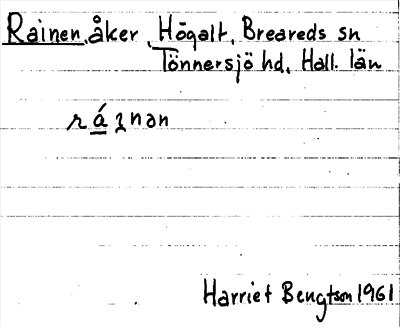 Rainen, åker, Högalt, Breareds sn
Tönnersjö hd, Hall. län
Harriet Bengtson 1961